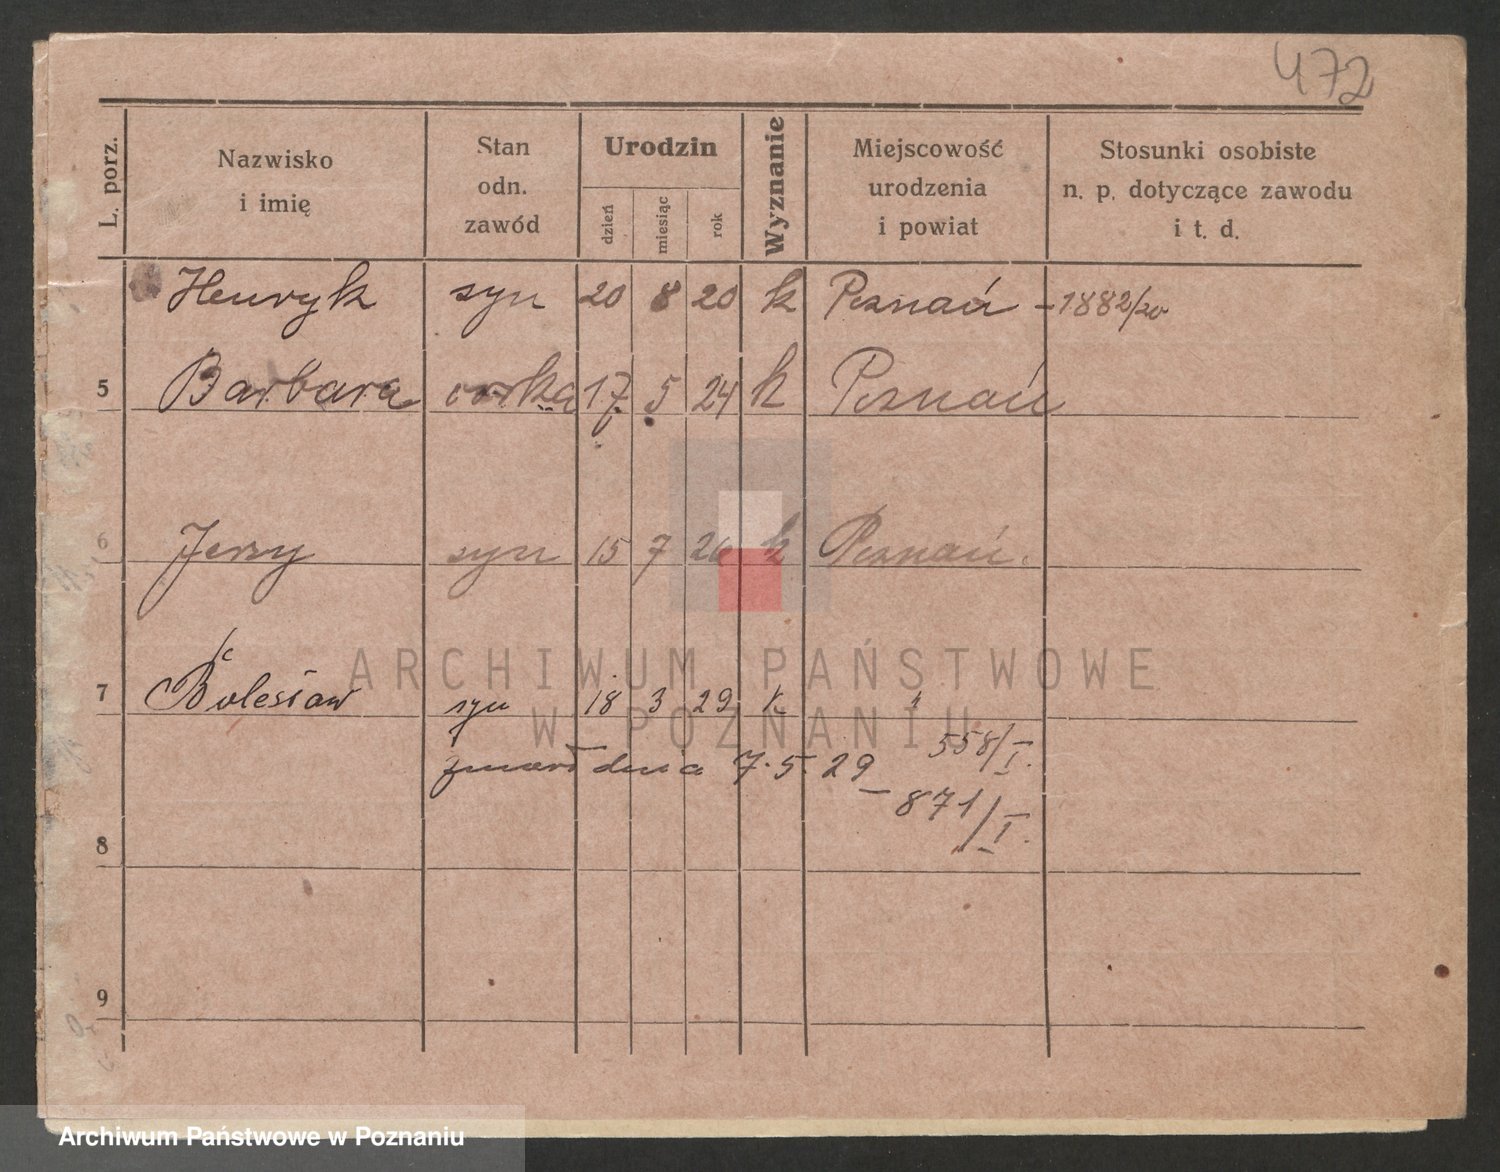 472
L. porz.
Nazwisko i imię
Stan odn. zawód
Urodzin
dzień miesiąc rok
Wyznanie
Miejscowość urodzenia i powiat
Stosunki osobiste n. p. dotyczące zawodu i t. d.
Henryk syn 20 8 20 k Poznań - 1882/20
5 Barbara córka 17 5 24 k Poznań
6 Jerzy syn 15 7 26 k Poznań.
7 Bolesław syn 18 3 29 k "
558/I.
zmarł dnia 7.5.29
– 871/I.
8
9
ARCHIWUM PAŃSTWOWE
W POZNANIU
Archiwum Państwowe w Poznaniu